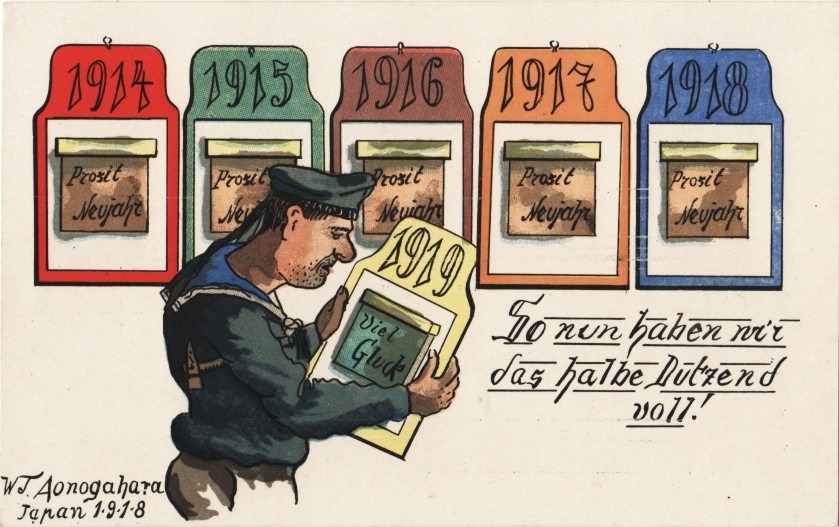 1914
1915
1916
1917
1918
Prosit
Neujahr
Prosit
Neu
Prosit
Neujahr
Prosit
Neujahr
Prosit
Neujahr
1919
Viel
Glück
So nun haben wir
das halbe Dutzend
voll!
WT. Aonogahara
Japan 1·9·1·8